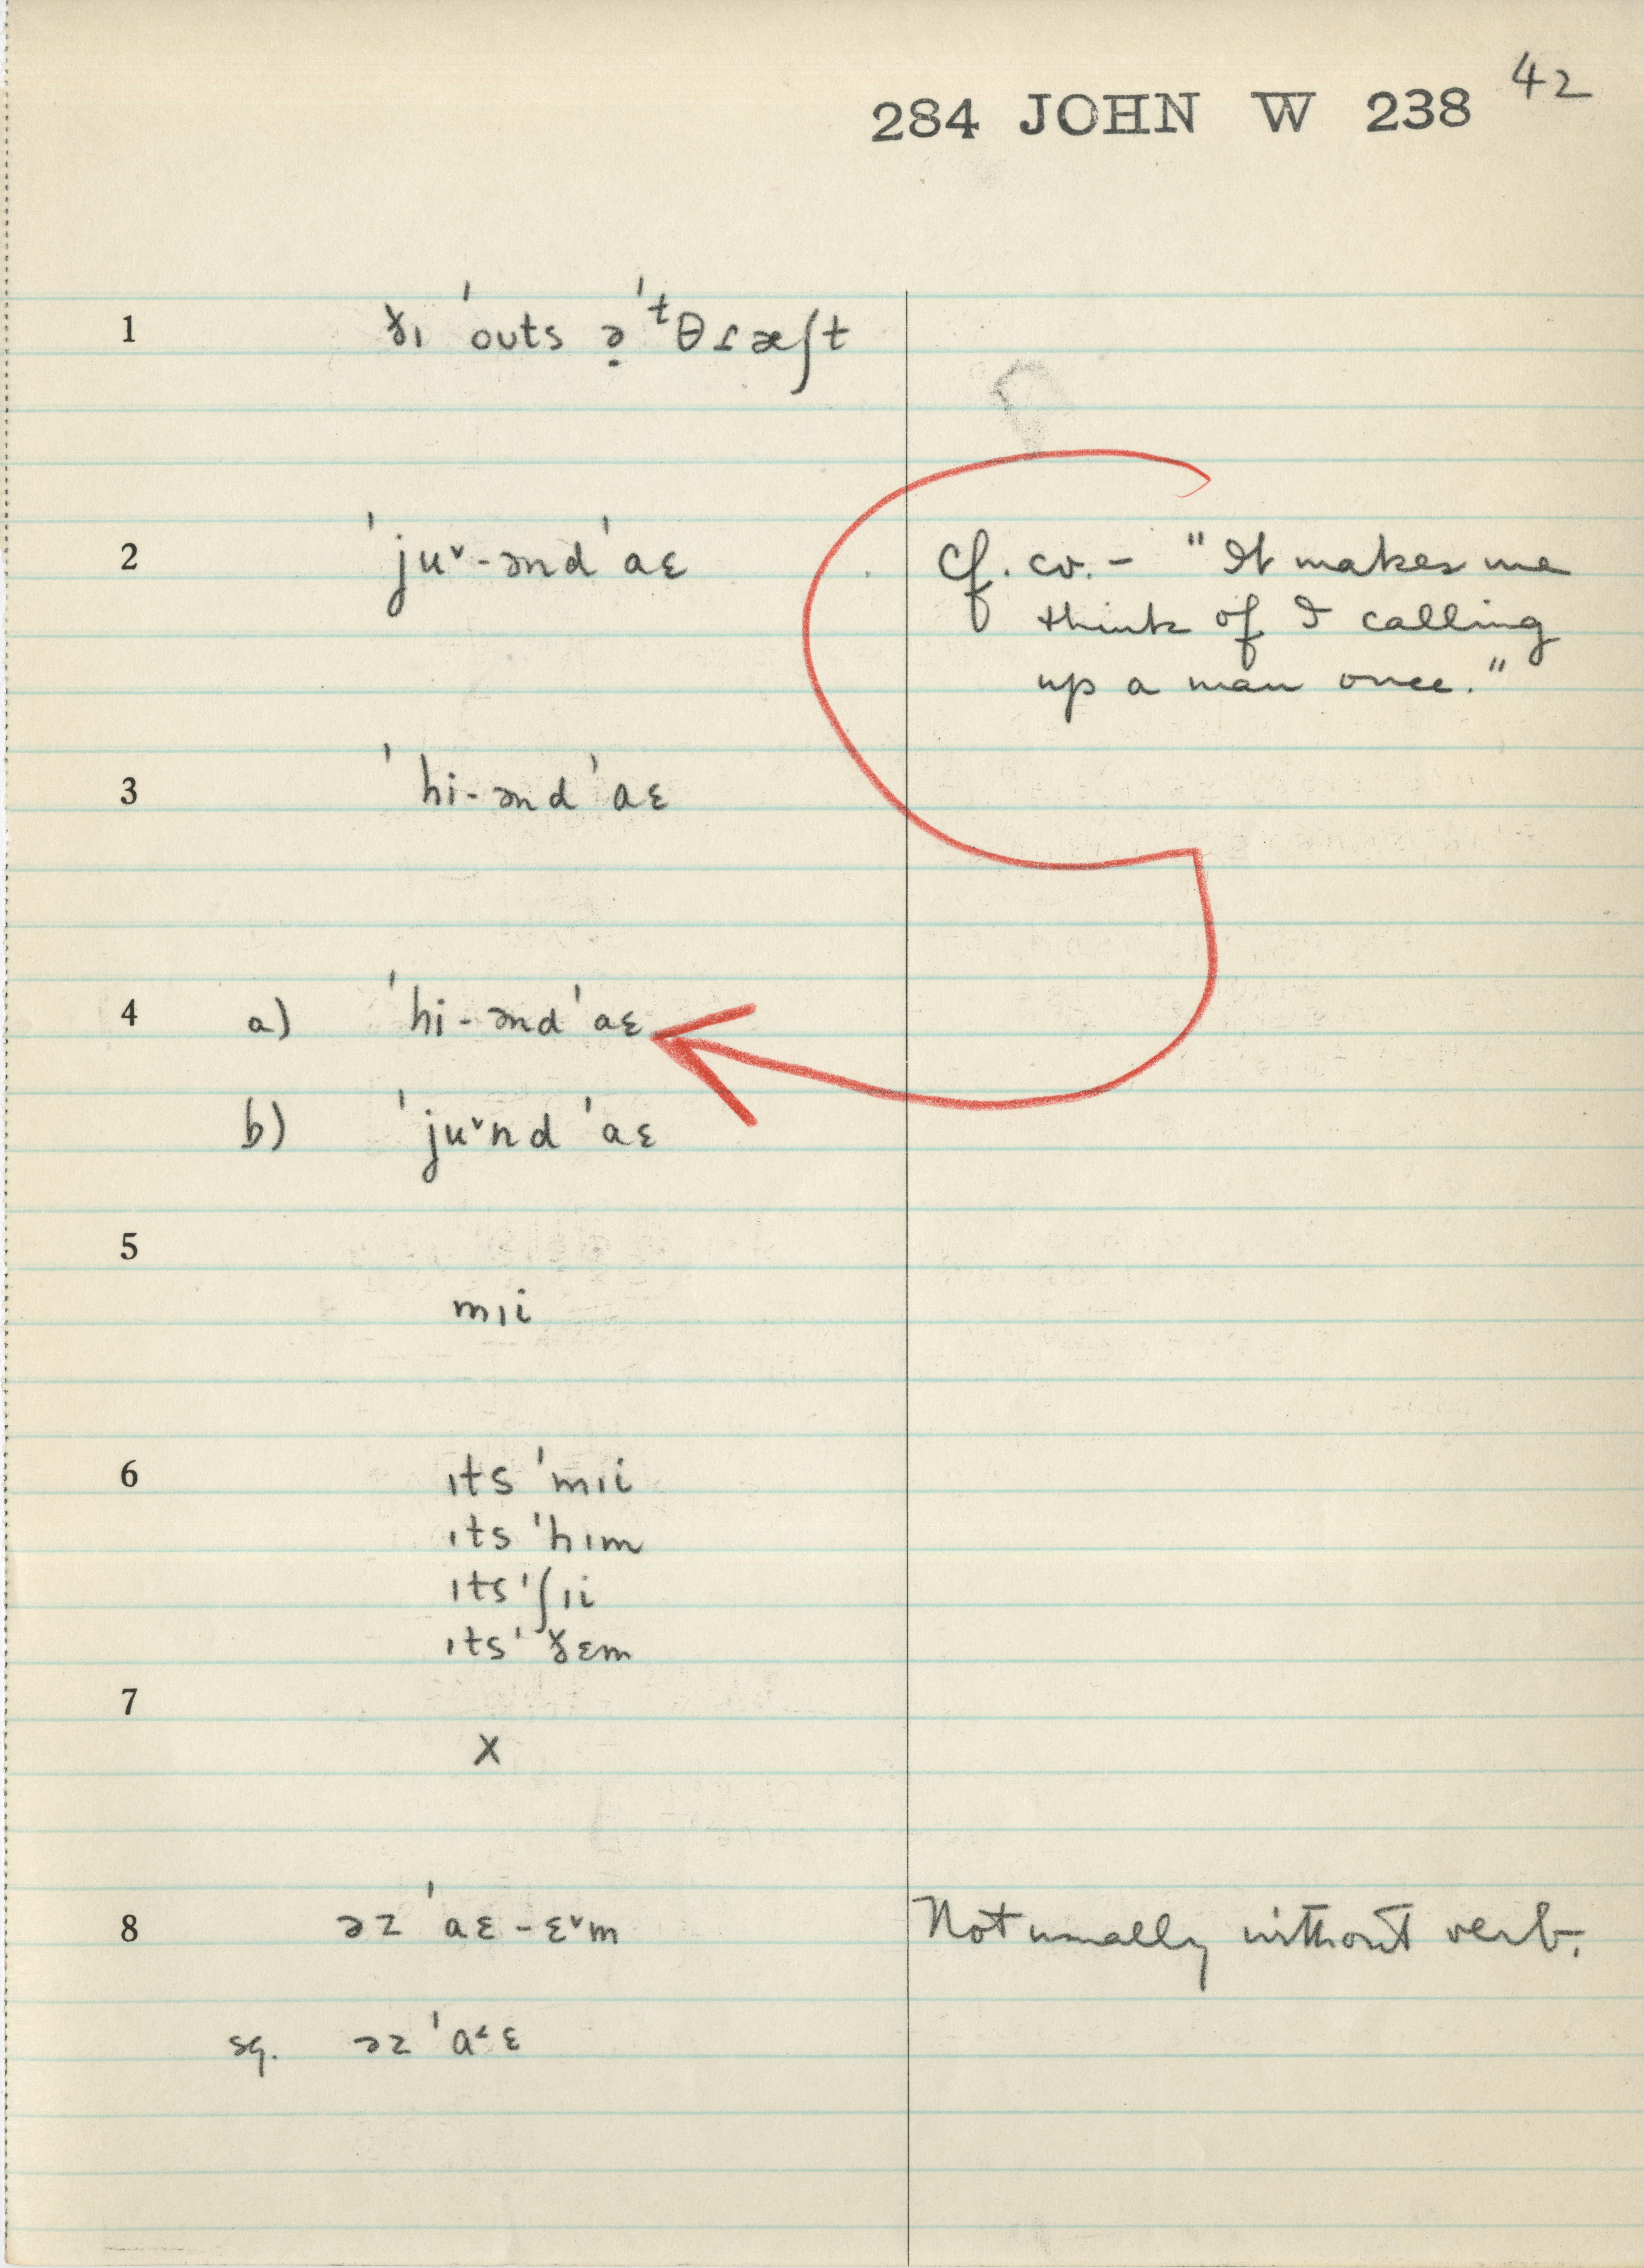 284 JOHN W 238 42
1 ɤɪ ˈouts ə̣ ˈᵗθɾæʃt
2 ˈjuˇ-ənd ˈaɛ cf. cv. – "It makes me
think of I calling
up a man once."
3 ˈhi-ənd ˈaɛ
4 a) ˈhi-ənd ˈaɛ
b) ˈjuˇnd ˈaɛ
5
mɪi
6 ɪts ˈmɪi
ɪts ˈhɪm
ɪts ˈʃɪi
ɪts ˈɤɛm
7
x
8 əz ˈaɛ-ɛˇm Not usually without verb.
sg. əz ˈa˂ɛ